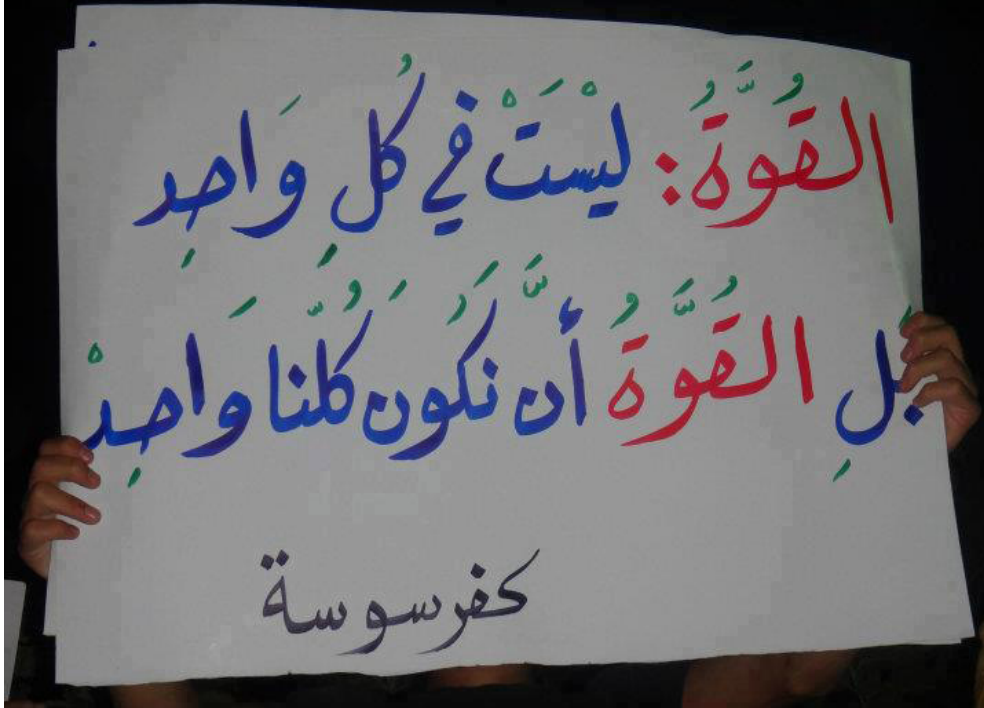 القُوَّةُ: ليْسَتْ في كُلِ وَاحِد
بَلِ القُوَّةُ أنَّ نَكُون كُلّنَا وَاحِدْ
كفرسوسة